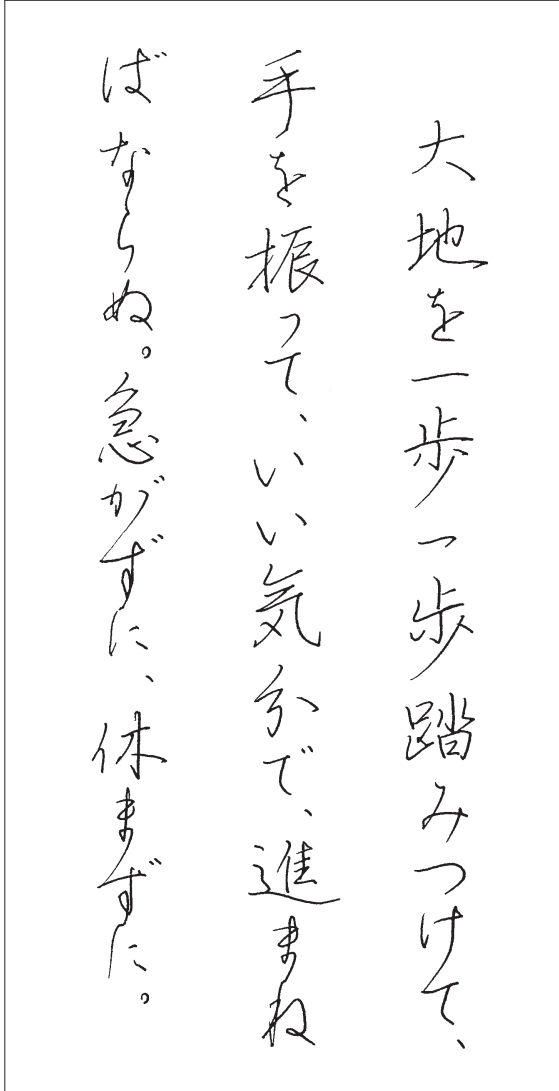 大地を一歩一歩踏みつけて、
手を振って、いい気分で、進まね
ばならぬ。急がずに、休まずに。